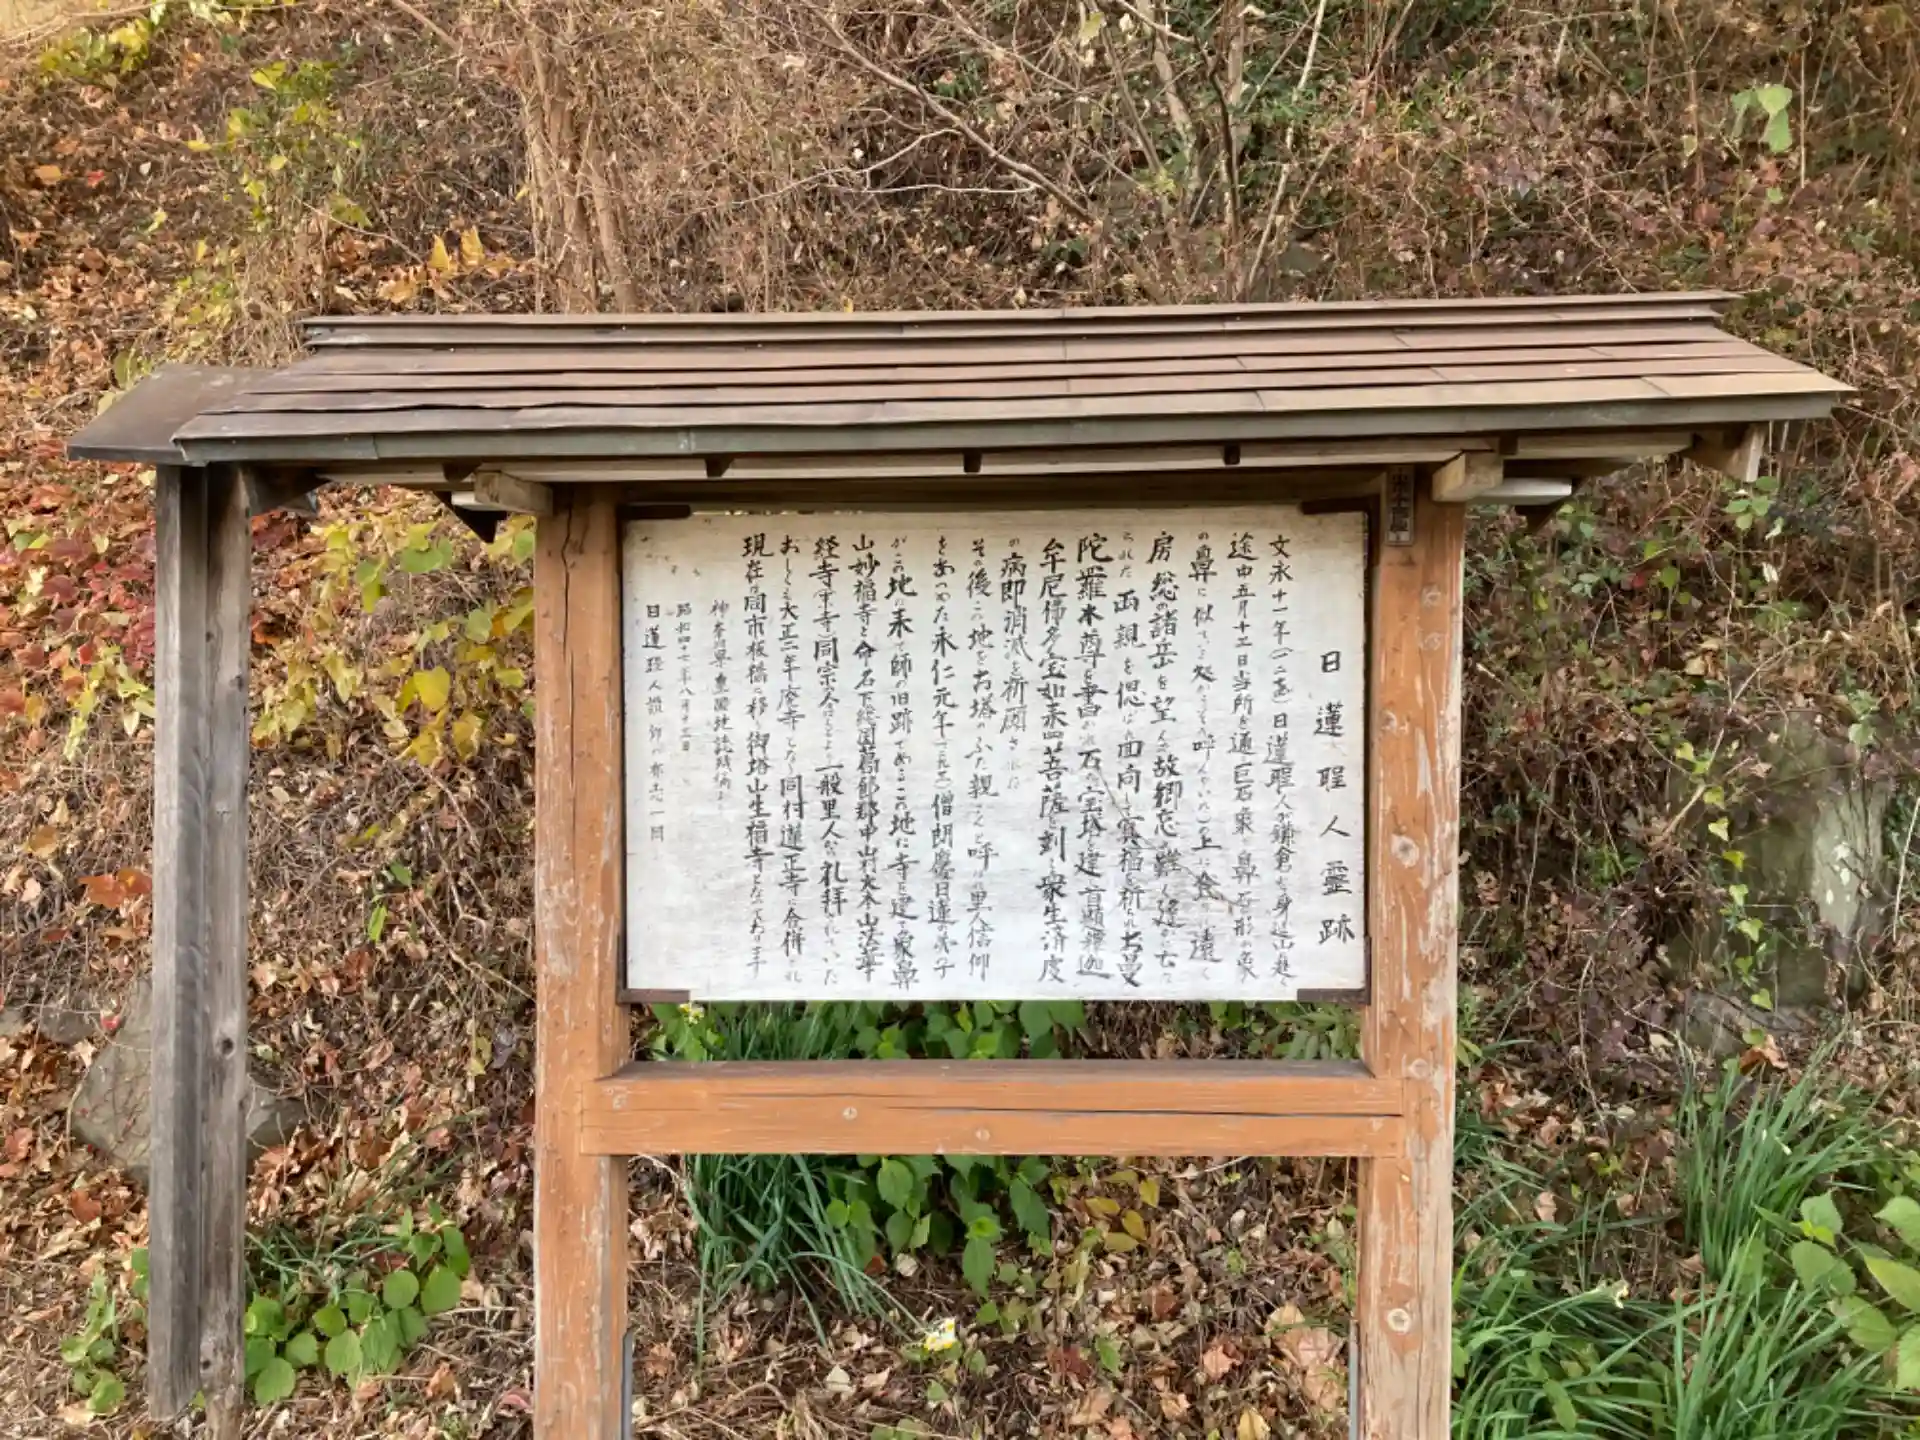 日蓮聖人霊跡
文永十一年(一二七四)日蓮聖人が鎌倉を身延山に赴く
途中五月十三日当所を通り巨石東に鼻石形の象
の鼻に似てる処からそう呼んでいた)の上に登り遠く
房総の諸岳を望んで故郷忘れ難く建かに亡く
られた両親を偲ばれ回向して冥福を祈られ大曼
陀羅本尊を書かれ石の宝塔を建て首題釈迦
牟尼佛多宝如来四菩薩を刻し衆生済度
の病即消滅を祈願された
その後この地をお塔のふた親さくと呼ばれ里人信仰
をあつめた永仁元年(一二九三)僧朗慶日蓮の弟子
がこの地に来て師の旧跡であるこの地に寺を建て象鼻
山妙福寺と命名下総国葛飾郡中山村大本山法華
経寺(中寺)同宗人はもとより一般里人から礼拝されていた
おしくも大正二年廃寺となり同村蓮正寺に合併され
現在は同市板橋に移り御塔山生福寺となっております
神奈川県皇国地誌残稿より
昭和四十七年八月十三日
日蓮聖人讃仰の有志一同